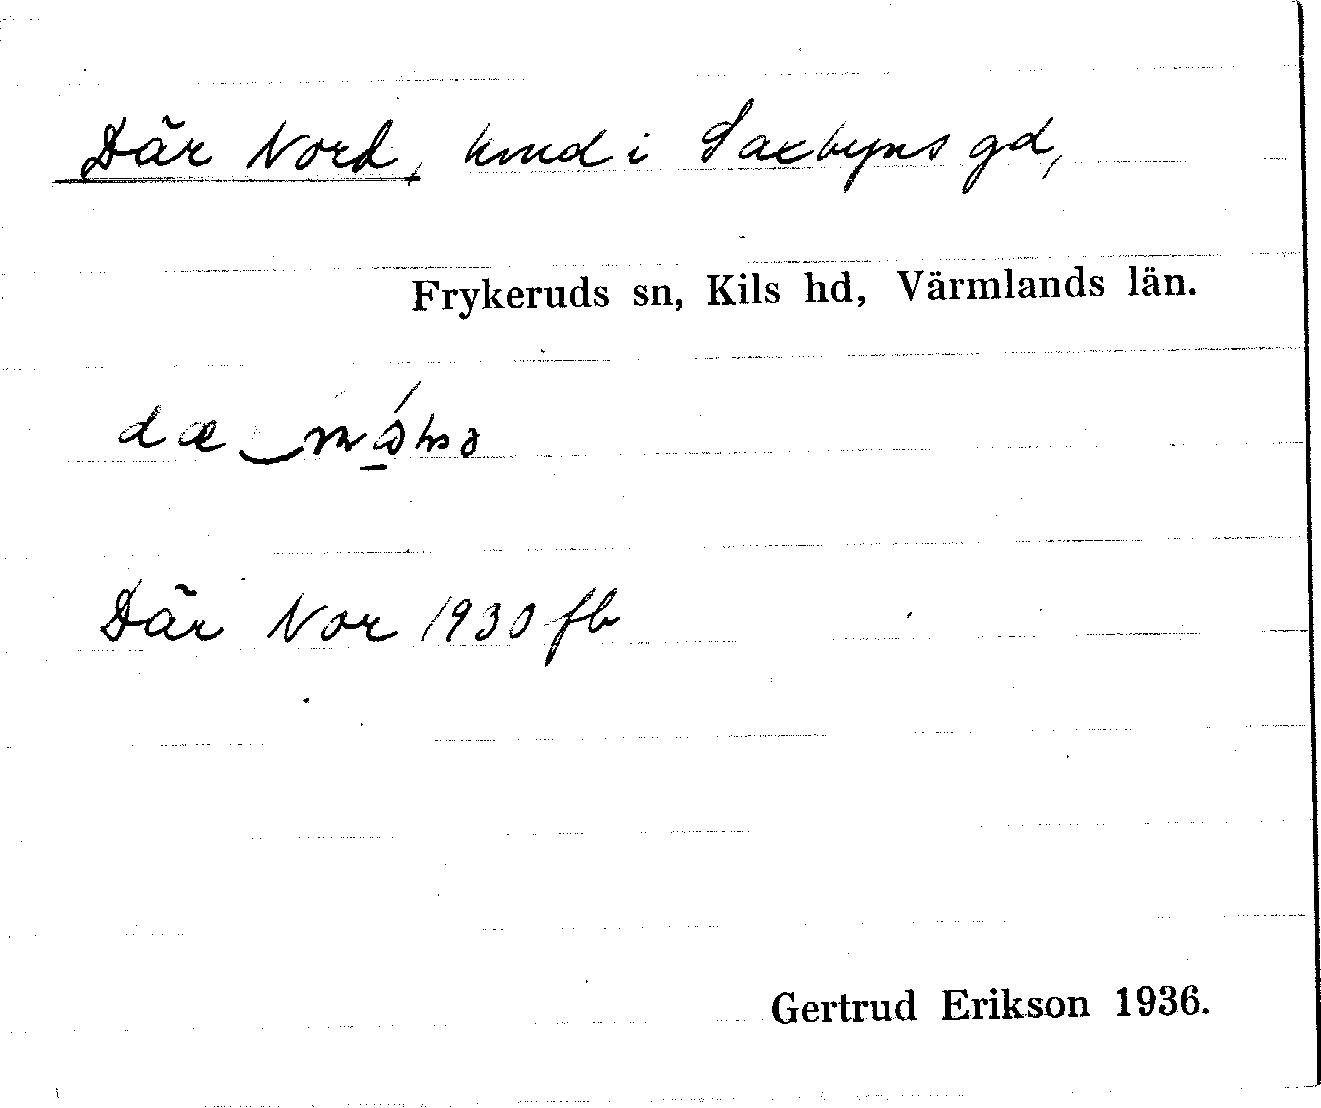 Där Nord, hmd i Saxbyns gd,
Frykeruds sn, Kils hd, Värmlands län.
Där Nor 1930 fb
Gertrud Erikson 1936.